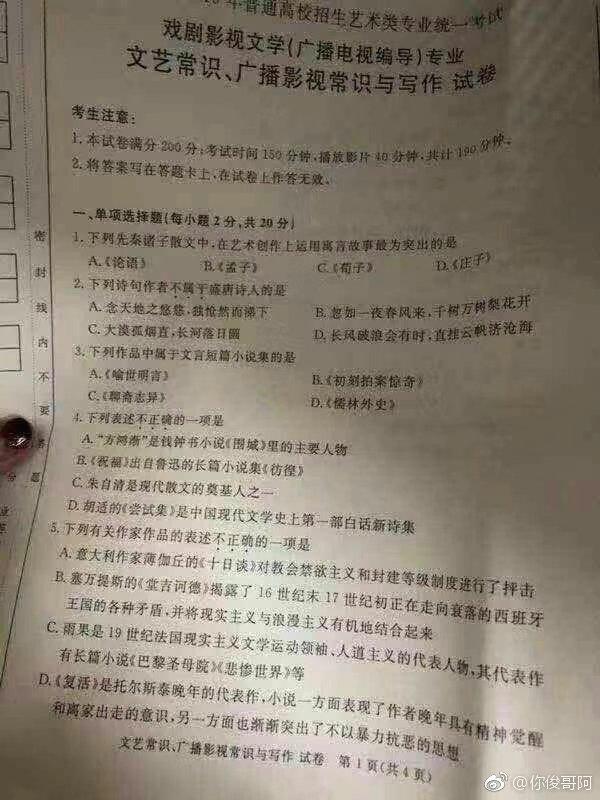 年普通高校招生艺术类专业统一考试
戏剧影视文学(广播电视编导)专业
文艺常识、广播影视常识与写作 试卷
考生注意:
1. 本试卷满分200分;考试时间150分钟,播放影片40分钟,共计190分钟。
2. 将答案写在答题卡上,在试卷上作答无效。
一、单项选择题(每小题2分,共20分)
1. 下列先秦诸子散文中,在艺术创作上运用寓言故事最为突出的是
A.《论语》 B.《孟子》 C.《荀子》 D.《庄子》
2. 下列诗句作者不属于盛唐诗人的是
A. 念天地之悠悠,独怆然而涕下 B. 忽如一夜春风来,千树万树梨花开
C. 大漠孤烟直,长河落日圆 D. 长风破浪会有时,直挂云帆济沧海
3. 下列作品中属于文言短篇小说集的是
A.《喻世明言》 B.《初刻拍案惊奇》
C.《聊斋志异》 D.《儒林外史》
4. 下列表述不正确的一项是
A. “方鸿渐”是钱钟书小说《围城》里的主要人物
B.《祝福》出自鲁迅的长篇小说集《彷徨》
C. 朱自清是现代散文的奠基人之一
D. 胡适的《尝试集》是中国现代文学史上第一部白话新诗集
5. 下列有关作家作品的表述不正确的一项是
A. 意大利作家薄伽丘的《十日谈》对教会禁欲主义和封建等级制度进行了抨击
B. 塞万提斯的《堂吉诃德》揭露了16世纪末17世纪初正在走向衰落的西班牙
王国的各种矛盾,并将现实主义与浪漫主义有机地结合起来
C. 雨果是19世纪法国现实主义文学运动领袖、人道主义的代表人物,其代表作
有长篇小说《巴黎圣母院》《悲惨世界》等
D.《复活》是托尔斯泰晚年的代表作,小说一方面表现了作者晚年具有精神觉醒
和离家出走的意识,另一方面也渐渐突出了不以暴力抗恶的思想
文艺常识、广播影视常识与写作 试卷 第1页(共4页)
密
封
线
内
不
要
答
题
分
@你俊哥阿